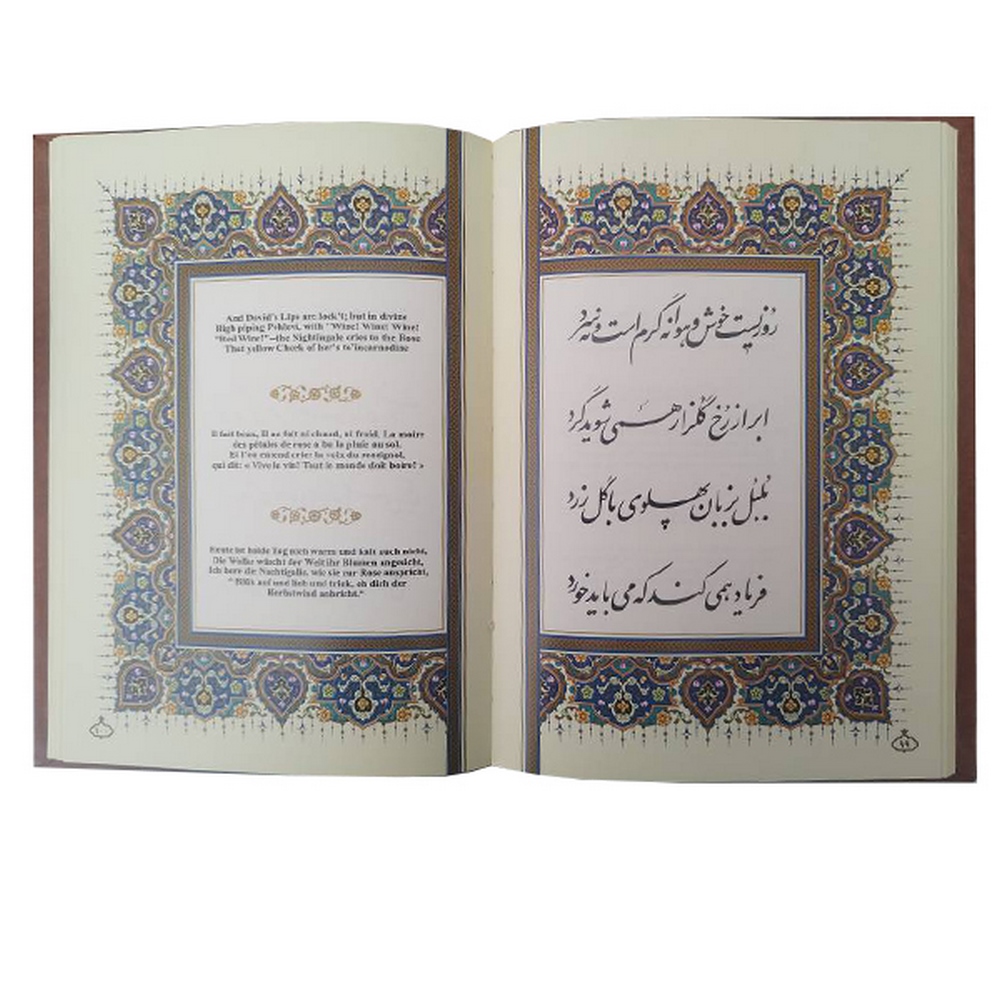 And David's Lips are lock't; but in divine
High piping Pehlevi, with "Wine! Wine! Wine!
"Red Wine!"--the Nightingale cries to the Rose
That yellow Cheek of her's to'incarnadine
Il fait beau, il ne fait ni chaud, ni froid, La moire
des pétales de rose a bu la pluie au sol.
Et l'on entend crier la voix du rossignol,
qui dit: « Vive le vin! Tout le monde doit boire! »
Heute ist holde Tag nich warm und kalt auch nicht,
Die Wolke wäscht der Welt ihr Blumen angesicht,
Ich höre die Nachtigalle, wie sie zur Rose anspricht,
" Blüh auf und lieb und trink, eh dich der
Herbstwind anbricht."
روزیست خوش و هوا نه گرم است و نه سرد
ابر از رخ گلزار همی شوید گرد
بلبل بزبان پهلوی با گل زرد
فریاد همی کند که می باید خورد